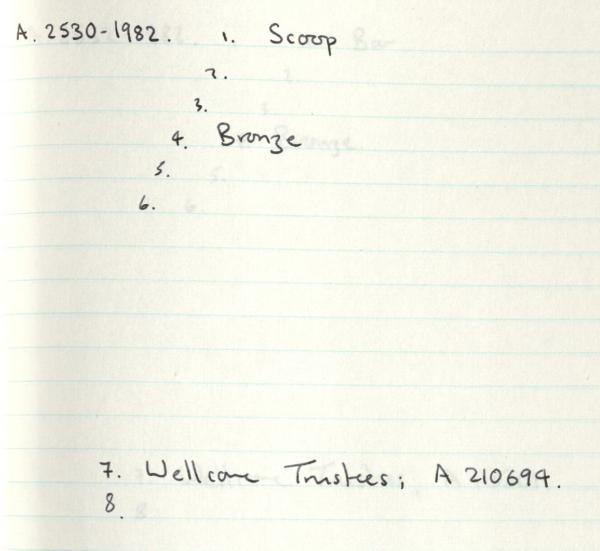 A. 2530-1982. 1. Scoop
2.
3.
4. Bronze
5.
6.
7. Wellcome Trustees; A 210694.
8.